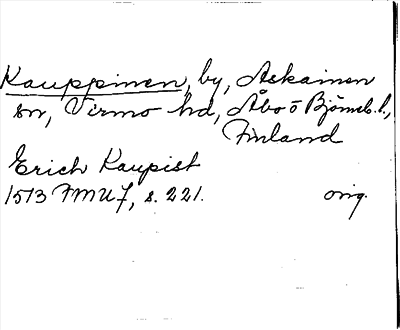 Kauppinen, by, Askainen
sn, Virmo hd, Åbo o Björneb. l.,
Finland
Erich Kaupist
1513 FMU 7, s. 221. orig.